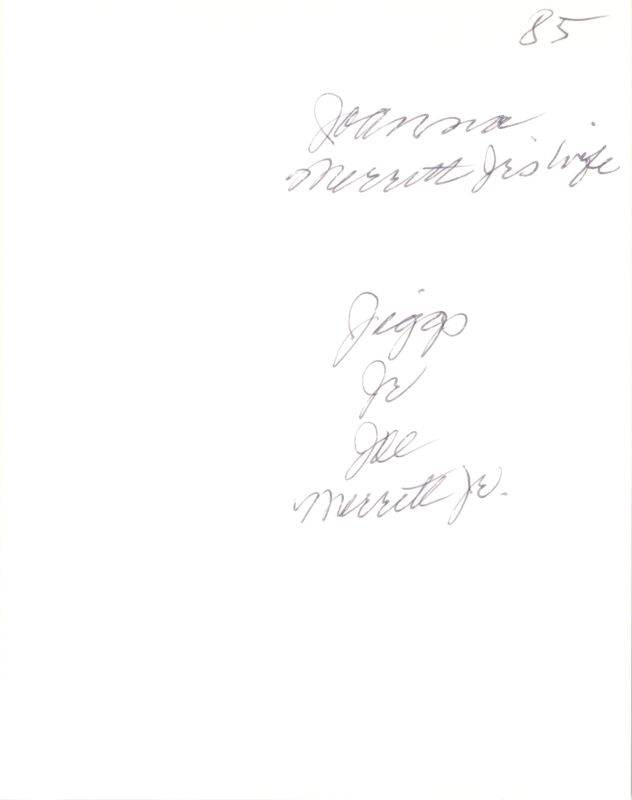 85
Joanna
Merritt Jr's Wife
Jiggs
Jr
Joe
Merritt Jr.